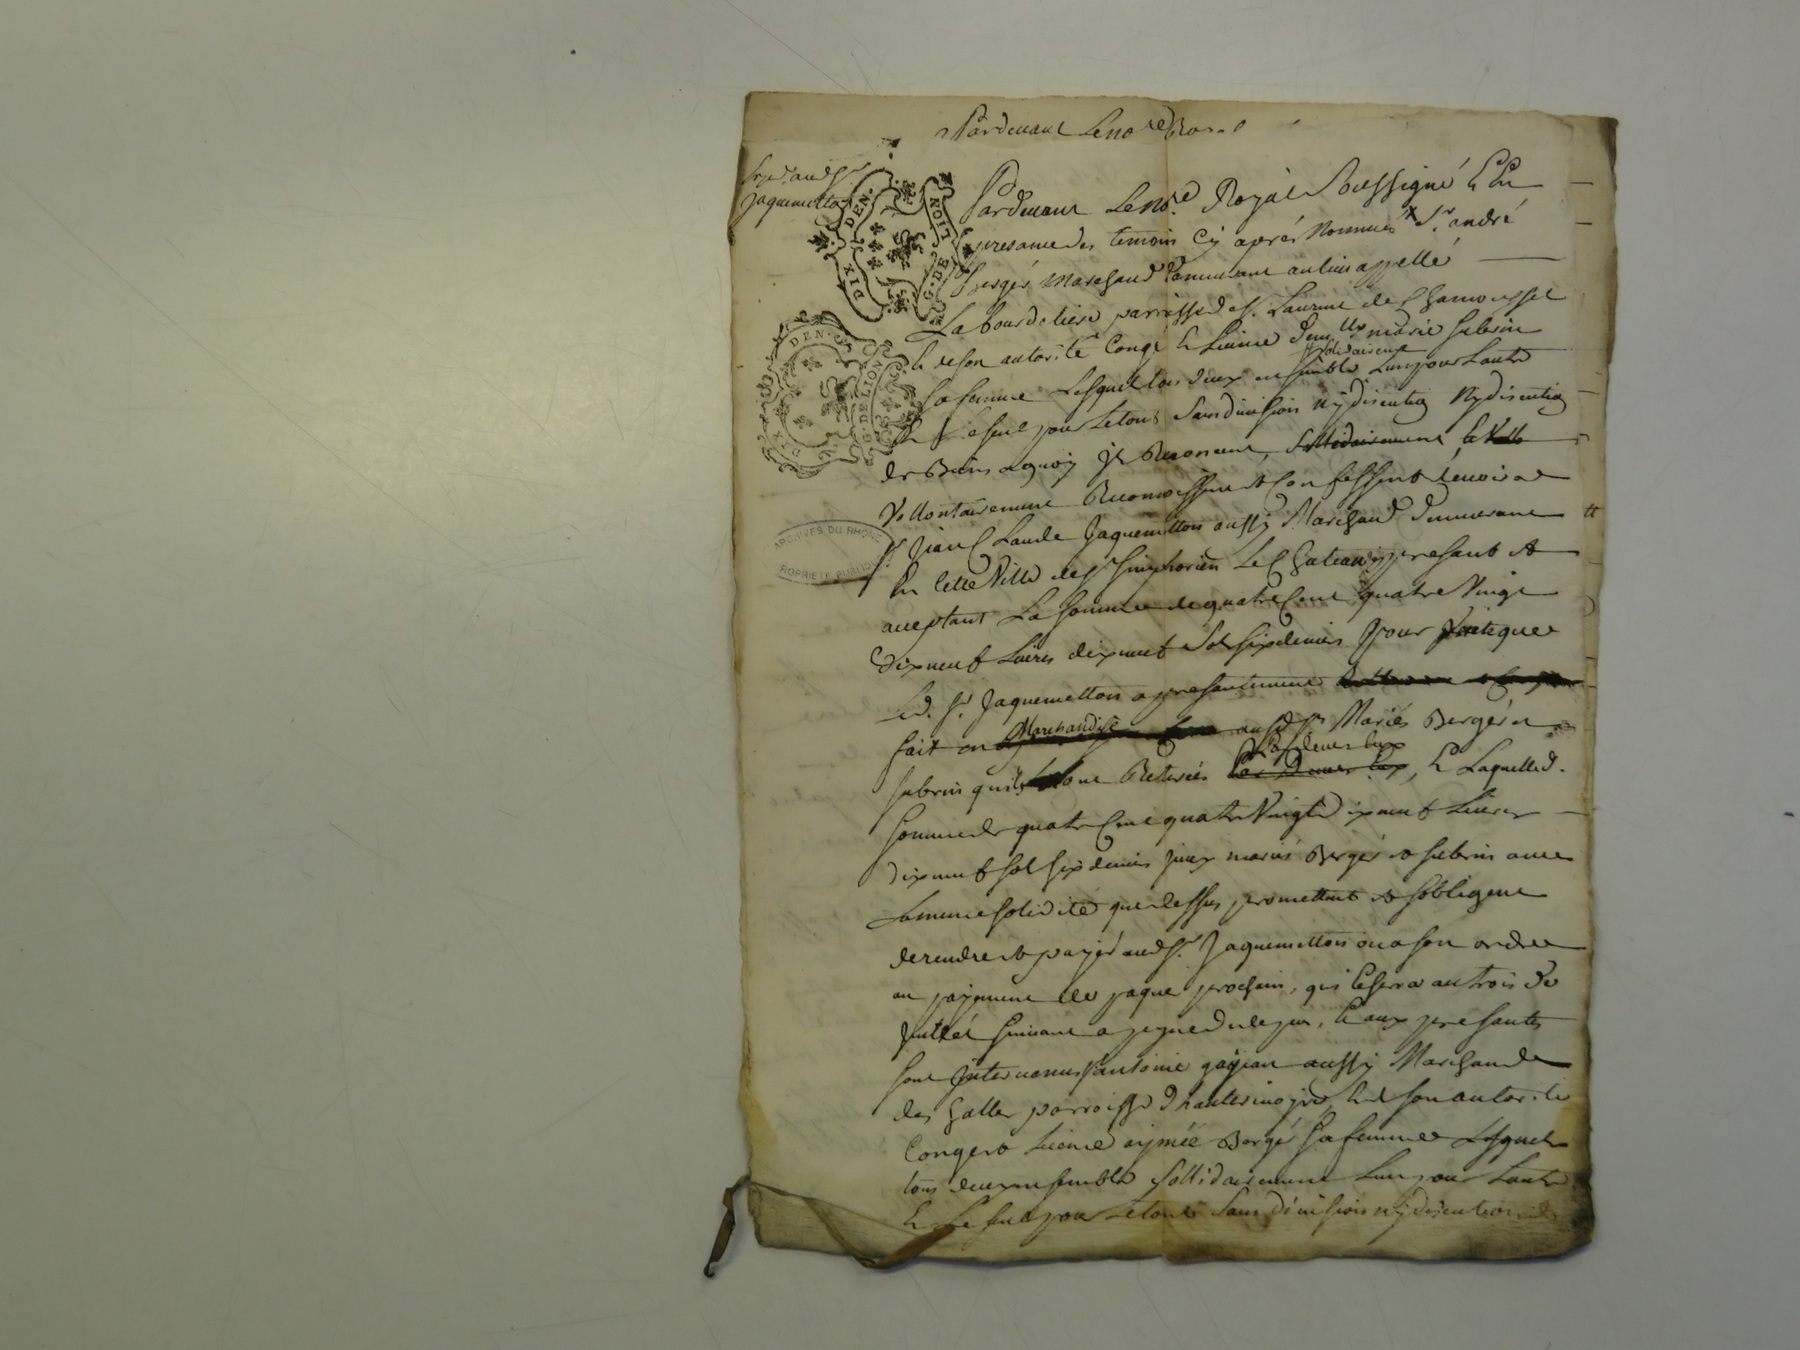 Pardevant Le nore Royal
Expedié aud Sr
Jaquemetton
DIX DEN.
G. DE LION
DIX DEN.
G. DE LION
Pardevant Le nore. Royal Soussigné & En
presance des temoins Cy aprés Nommés x Sr. andré
Bergér Marchand Demeurant au lieu appellé
La bourdeliere parroisse de St. Laurent de Chamousset
& de son autorité Congé & Licence Demlle marie subrin
sa femme Lesquels tous deux ensemble solidairemt Lun pour Lautre
& Le seul pour Le tout sans division ny discution Ny discution
de Biens a quoy Ils Renoncent, sollidairement,
Vollontairement Reconnoissent & Confessent devoir a
Sr Jean Claude Jaquemetton aussy Marchand Demeurant
En Cette Ville de St Simphorien Le Chateau, presant &
acceptant La somme de quatre Cent quatre Vingt
Dix neuf Livres dix neuf Sol six deniers pour
Led. Sr. Jaquemetton a presantement
fait en Marchandise ausd. Srs Mariés Bergér &
subrin quils ont Retirés Par devers Eux, & Laquelle d.
somme de quatre Cent quatre Vingt Dix neuf Livres
dix neuf sol six deniers Iceux mariés Bergér & subrin avec
La meme solidité que dessus promettent & sobligent
de rendre & payér aud Sr. Jaquemetton ou a son ordre
au payement de paque prochain, qui Eschera au trois de
Juillét suivant a peyne de depens, & aux presantes
sont Intervenus Sr antoine gayean aussy Marchand
des halles parroisse D'hauterivoire, & de son autorité
Congé & Licence aymée Bergér sa femme Lesquels
tous deux ensemble sollidairement Lun pour Lautre
& Le seul pour Le tout Sans division ny discution
ARCHIVES DU RHONE
PROPRIÉTÉ PUBLIQUE